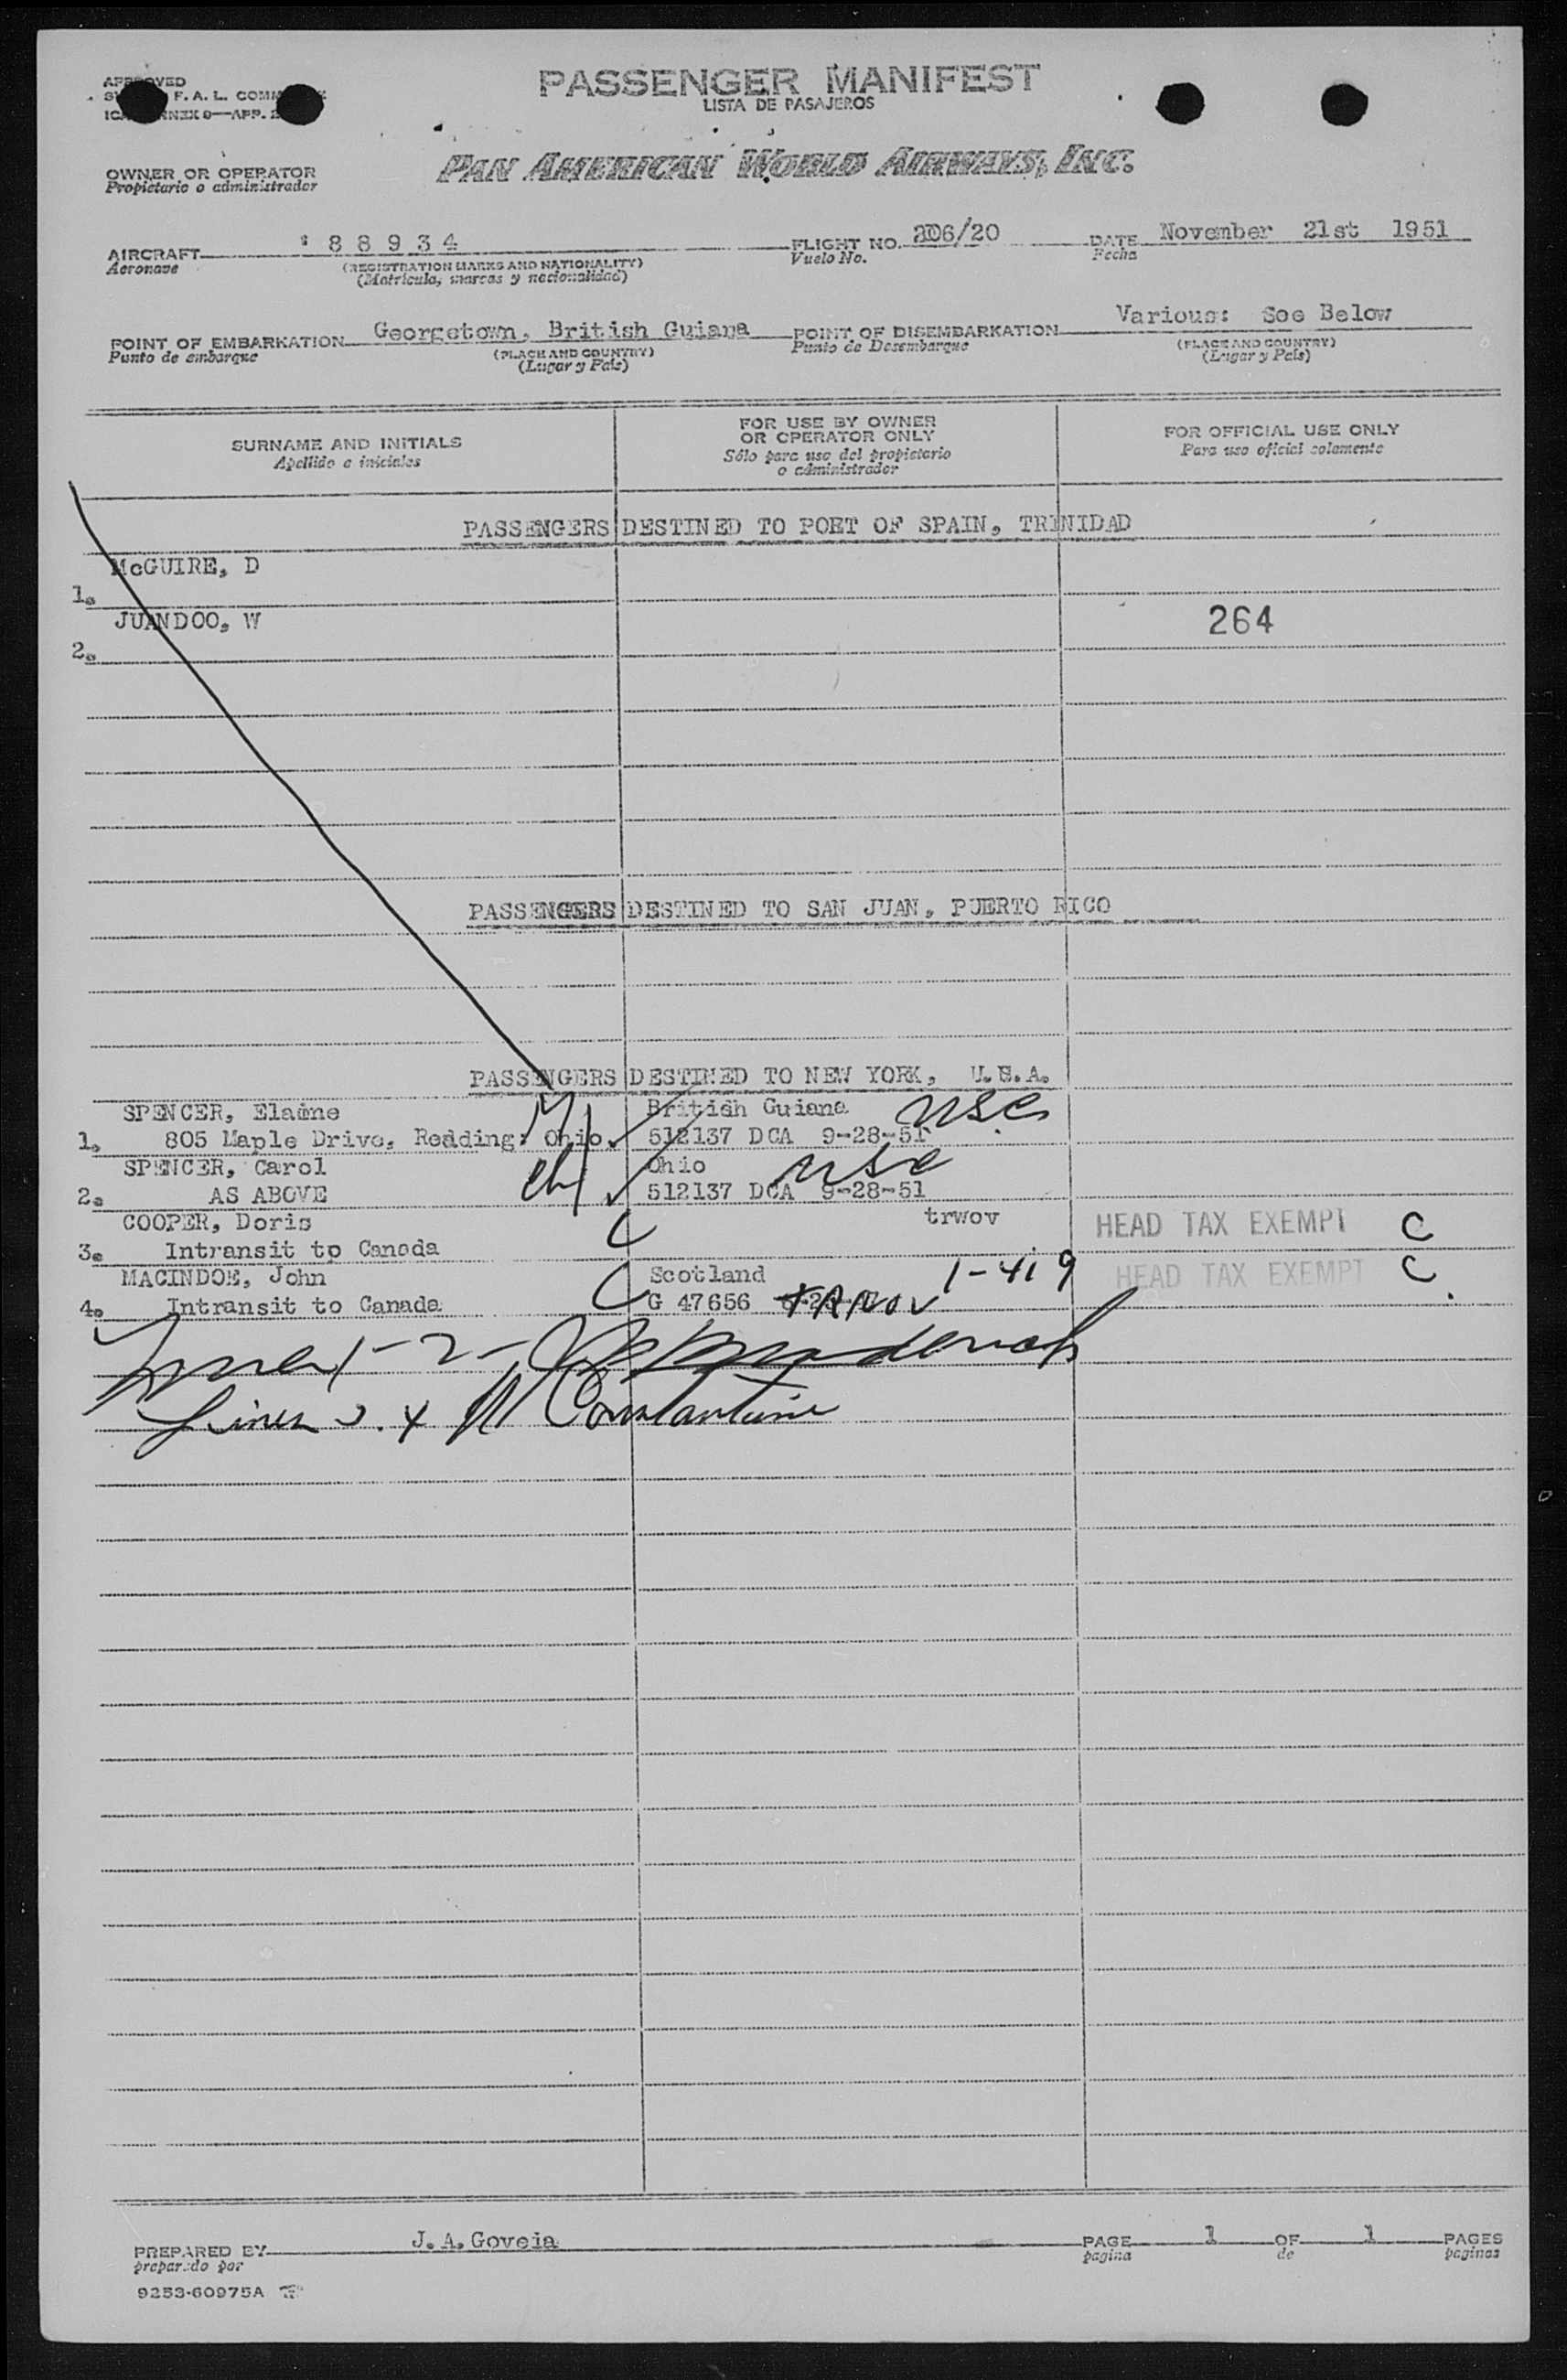 PASSENGER MANIFEST
LISTA DE PASAJEROS
F. A. L.
PAN AMERICAN WORLD AIRWAYS, INC.
OWNER OR OPERATOR
Propietario o administrador
AIRCRAFT 88934 FLIGHT NO. 206/20 DATE November 21st 1951
Aeronave (REGISTRATION MARKS AND NATIONALITY) Vuelo No. Fecha
(Matrícula, marcas y nacionalidad)
POINT OF EMBARKATION Georgetown, British Guiana POINT OF DISEMBARKATION Various: See Below
Punto de embarque (PLACE AND COUNTRY) Punto de Desembarque (PLACE AND COUNTRY)
(Lugar y País) (Lugar y País)
SURNAME AND INITIALS
Apellido e iniciales
FOR USE BY OWNER
OR OPERATOR ONLY
Sólo para uso del propietario
o administrador
FOR OFFICIAL USE ONLY
Para uso oficial solamente
PASSENGERS DESTINED TO PORT OF SPAIN, TRINIDAD
McGUIRE, D
1.
JUANDOO, W 264
2.
PASSENGERS DESTINED TO SAN JUAN, PUERTO RICO
PASSENGERS DESTINED TO NEW YORK, U.S.A.
SPENCER, Elaine British Guiana usc
1. 805 Maple Drive, Redding: Ohio. 512137 DCA 9-28-51
SPENCER, Carol Ohio usc
2. AS ABOVE 512137 DCA 9-28-51
COOPER, Doris C trwov HEAD TAX EXEMPT C
3. Intransit to Canada
MACINDOE, John C Scotland 1-419 HEAD TAX EXEMPT C
4. Intransit to Canada G 47656 TRWOV
1-2-
Lines 3.4 Constantine
PREPARED BY J.A.Goveia PAGE 1 OF 1 PAGES
preparado por pagina de paginas
9253-60975A